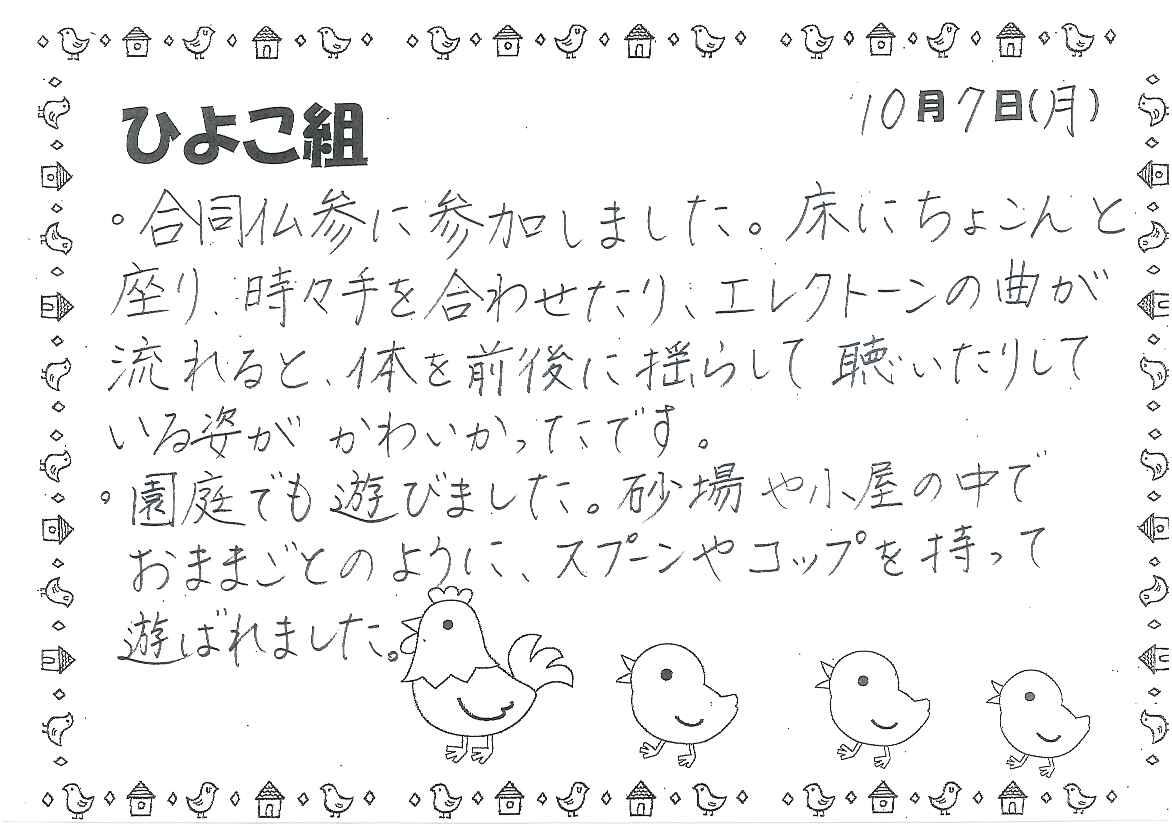 ひよこ組
10月7日(月)
。合同仏参に参加しました。床にちょこんと
座り、時々手を合わせたり、エレクトーンの曲が
流れると、体を前後に揺らして聴いたりして
いる姿がかわいかったです。
。園庭でも遊びました。砂場や小屋の中で
おままごとのように、スプーンやコップを持って
遊ばれました。